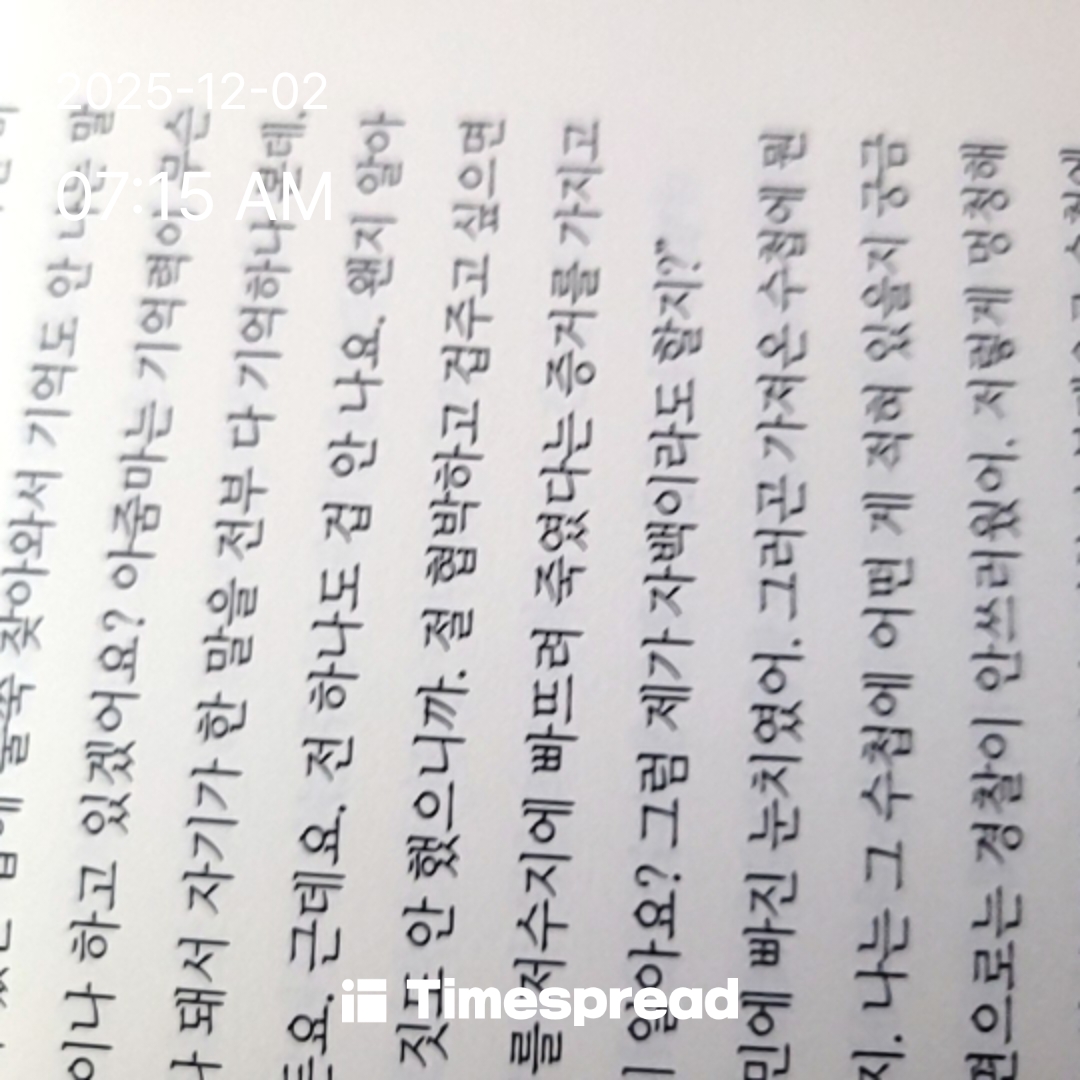 2025-12-02
07:15 AM
찾아와서 기억도 안 나는 말
이나 하고 있겠어요? 아줌마는 기억력이 무슨
돼서 자기가 한 말을 전부 다 기억하나 본데,
요. 근데요. 전 하나도 겁 안 나요. 왠지 알아
짓도 안 했으니까. 절 협박하고 겁주고 싶으면
를 저수지에 빠뜨려 죽였다는 증거를 가지고
알아요? 그럼 제가 자백이라도 할지?"
민에 빠진 눈치였어. 그러곤 가져온 수첩에 뭔
지. 나는 그 수첩에 어떤 게 적혀 있을지 궁금
편으로는 경찰이 안쓰러웠어. 저렇게 멍청해
Timespread